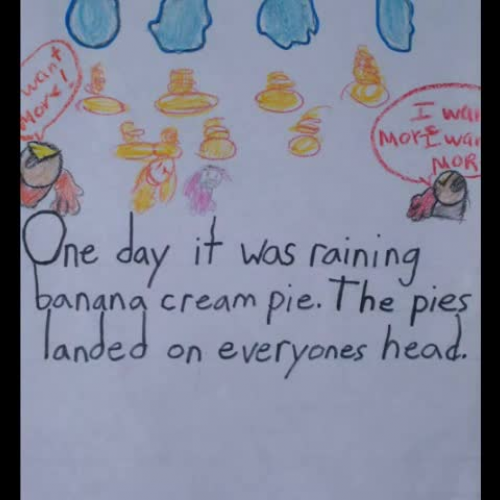 want
More!
I
More want
MOR
One day it was raining
banana cream pie. The pies
landed on everyones head.